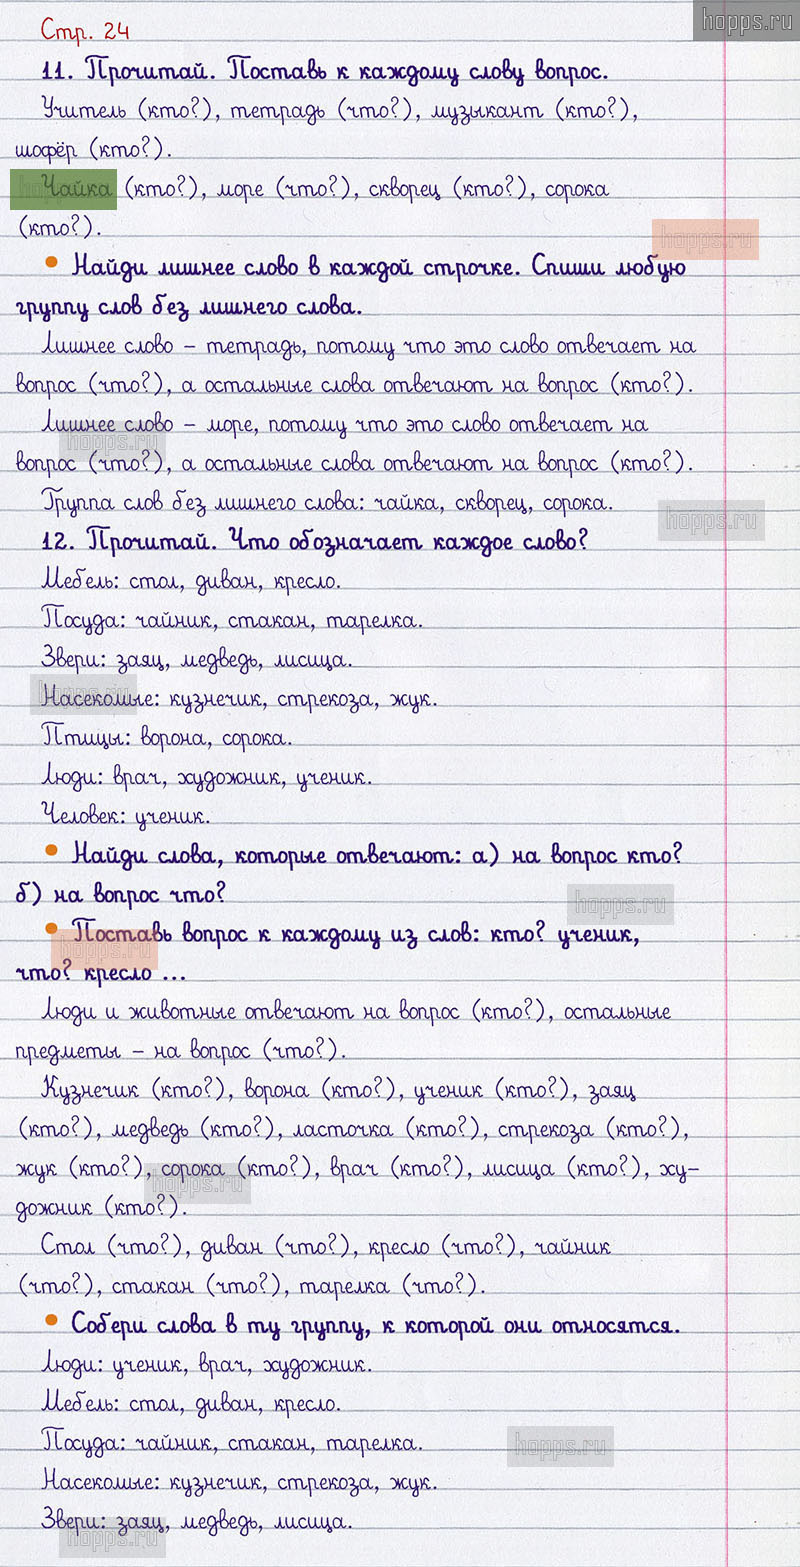 hopps.ru
Стр. 24
11. Прочитай. Поставь к каждому слову вопрос.
Учитель (кто?), тетрадь (что?), музыкант (кто?),
шофёр (кто?).
Чайка (кто?), море (что?), скворец (кто?), сорока
(кто?).
hopps.ru
• Найди лишнее слово в каждой строчке. Спиши любую
группу слов без лишнего слова.
Лишнее слово – тетрадь, потому что это слово отвечает на
вопрос (что?), а остальные слова отвечают на вопрос (кто?).
Лишнее слово – море, потому что это слово отвечает на
hopps.ru
вопрос (что?), а остальные слова отвечают на вопрос (кто?).
Группа слов без лишнего слова: чайка, скворец, сорока.
hopps.ru
12. Прочитай. Что обозначает каждое слово?
Мебель: стол, диван, кресло.
Посуда: чайник, стакан, тарелка.
Звери: заяц, медведь, лисица.
hopps.ru
Насекомые: кузнечик, стрекоза, жук.
Птицы: ворона, сорока.
Люди: врач, художник, ученик.
Человек: ученик.
• Найди слова, которые отвечают: а) на вопрос кто?
б) на вопрос что?
hopps.ru
• Поставь вопрос к каждому из слов: кто? ученик,
hopps.ru
что? кресло ...
Люди и животные отвечают на вопрос (кто?), остальные
предметы – на вопрос (что?).
Кузнечик (кто?), ворона (кто?), ученик (кто?), заяц
(кто?), медведь (кто?), ласточка (кто?), стрекоза (кто?),
жук (кто?), сорока (кто?), врач (кто?), лисица (кто?), ху-
hopps.ru
дожник (кто?).
Стол (что?), диван (что?), кресло (что?), чайник
(что?), стакан (что?), тарелка (что?).
• Собери слова в ту группу, к которой они относятся.
Люди: ученик, врач, художник.
Мебель: стол, диван, кресло.
Посуда: чайник, стакан, тарелка.
hopps.ru
Насекомые: кузнечик, стрекоза, жук.
Звери: заяц, медведь, лисица.
hopps.ru